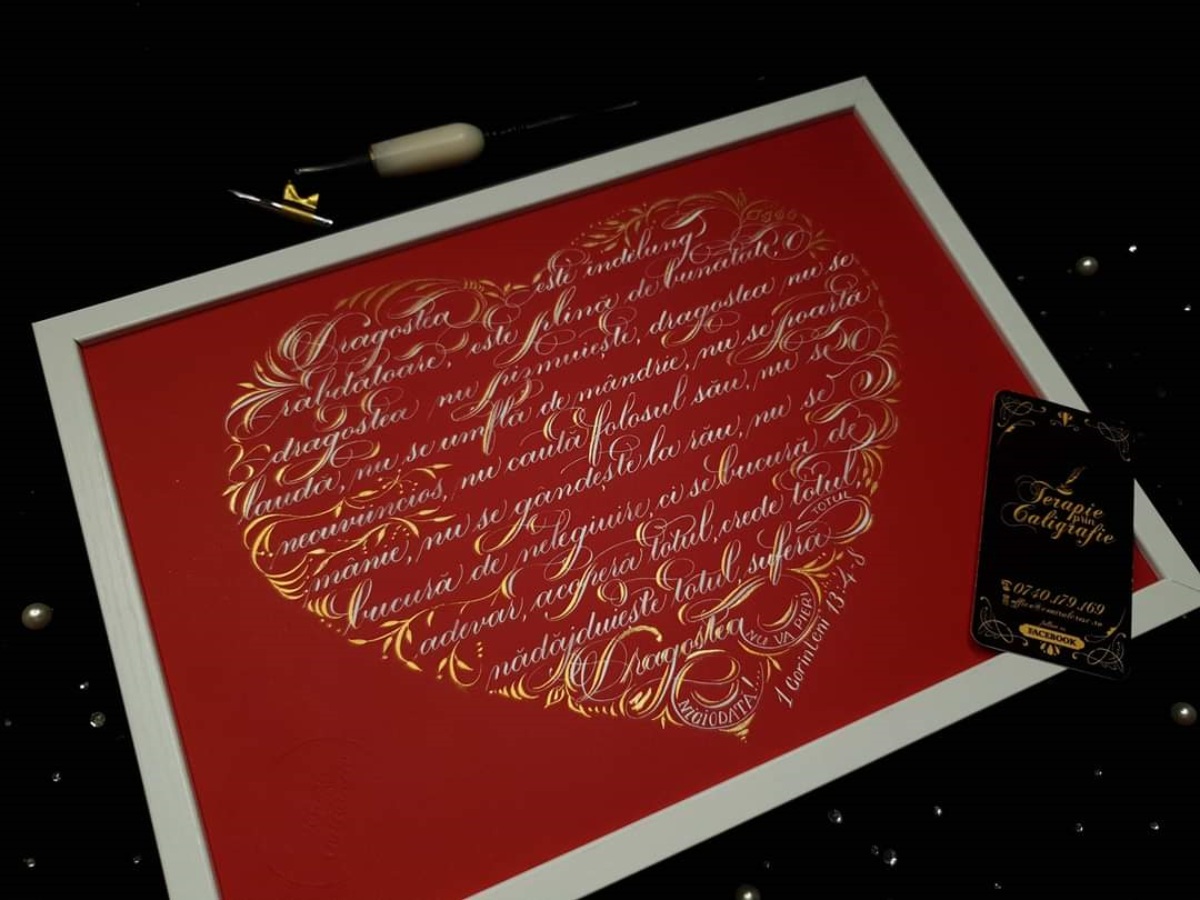 Dragostea este îndelung
răbdătoare, este plină de bunătate,
dragostea nu pizmuiește, dragostea nu se
laudă, nu se umflă de mândrie, nu se poartă
necuviincios, nu caută folosul său, nu se
mânie, nu se gândește la rău, nu se
bucură de nelegiuire, ci se bucură de
adevăr, acoperă totul, crede totul,
nădăjduiește totul, suferă TOTUL
Dragostea NU VA PIERI
NICIODATĂ!...
1 Corinteni 13:4-8
Terapie
prin
Caligrafie
0740.179.169
FACEBOOK